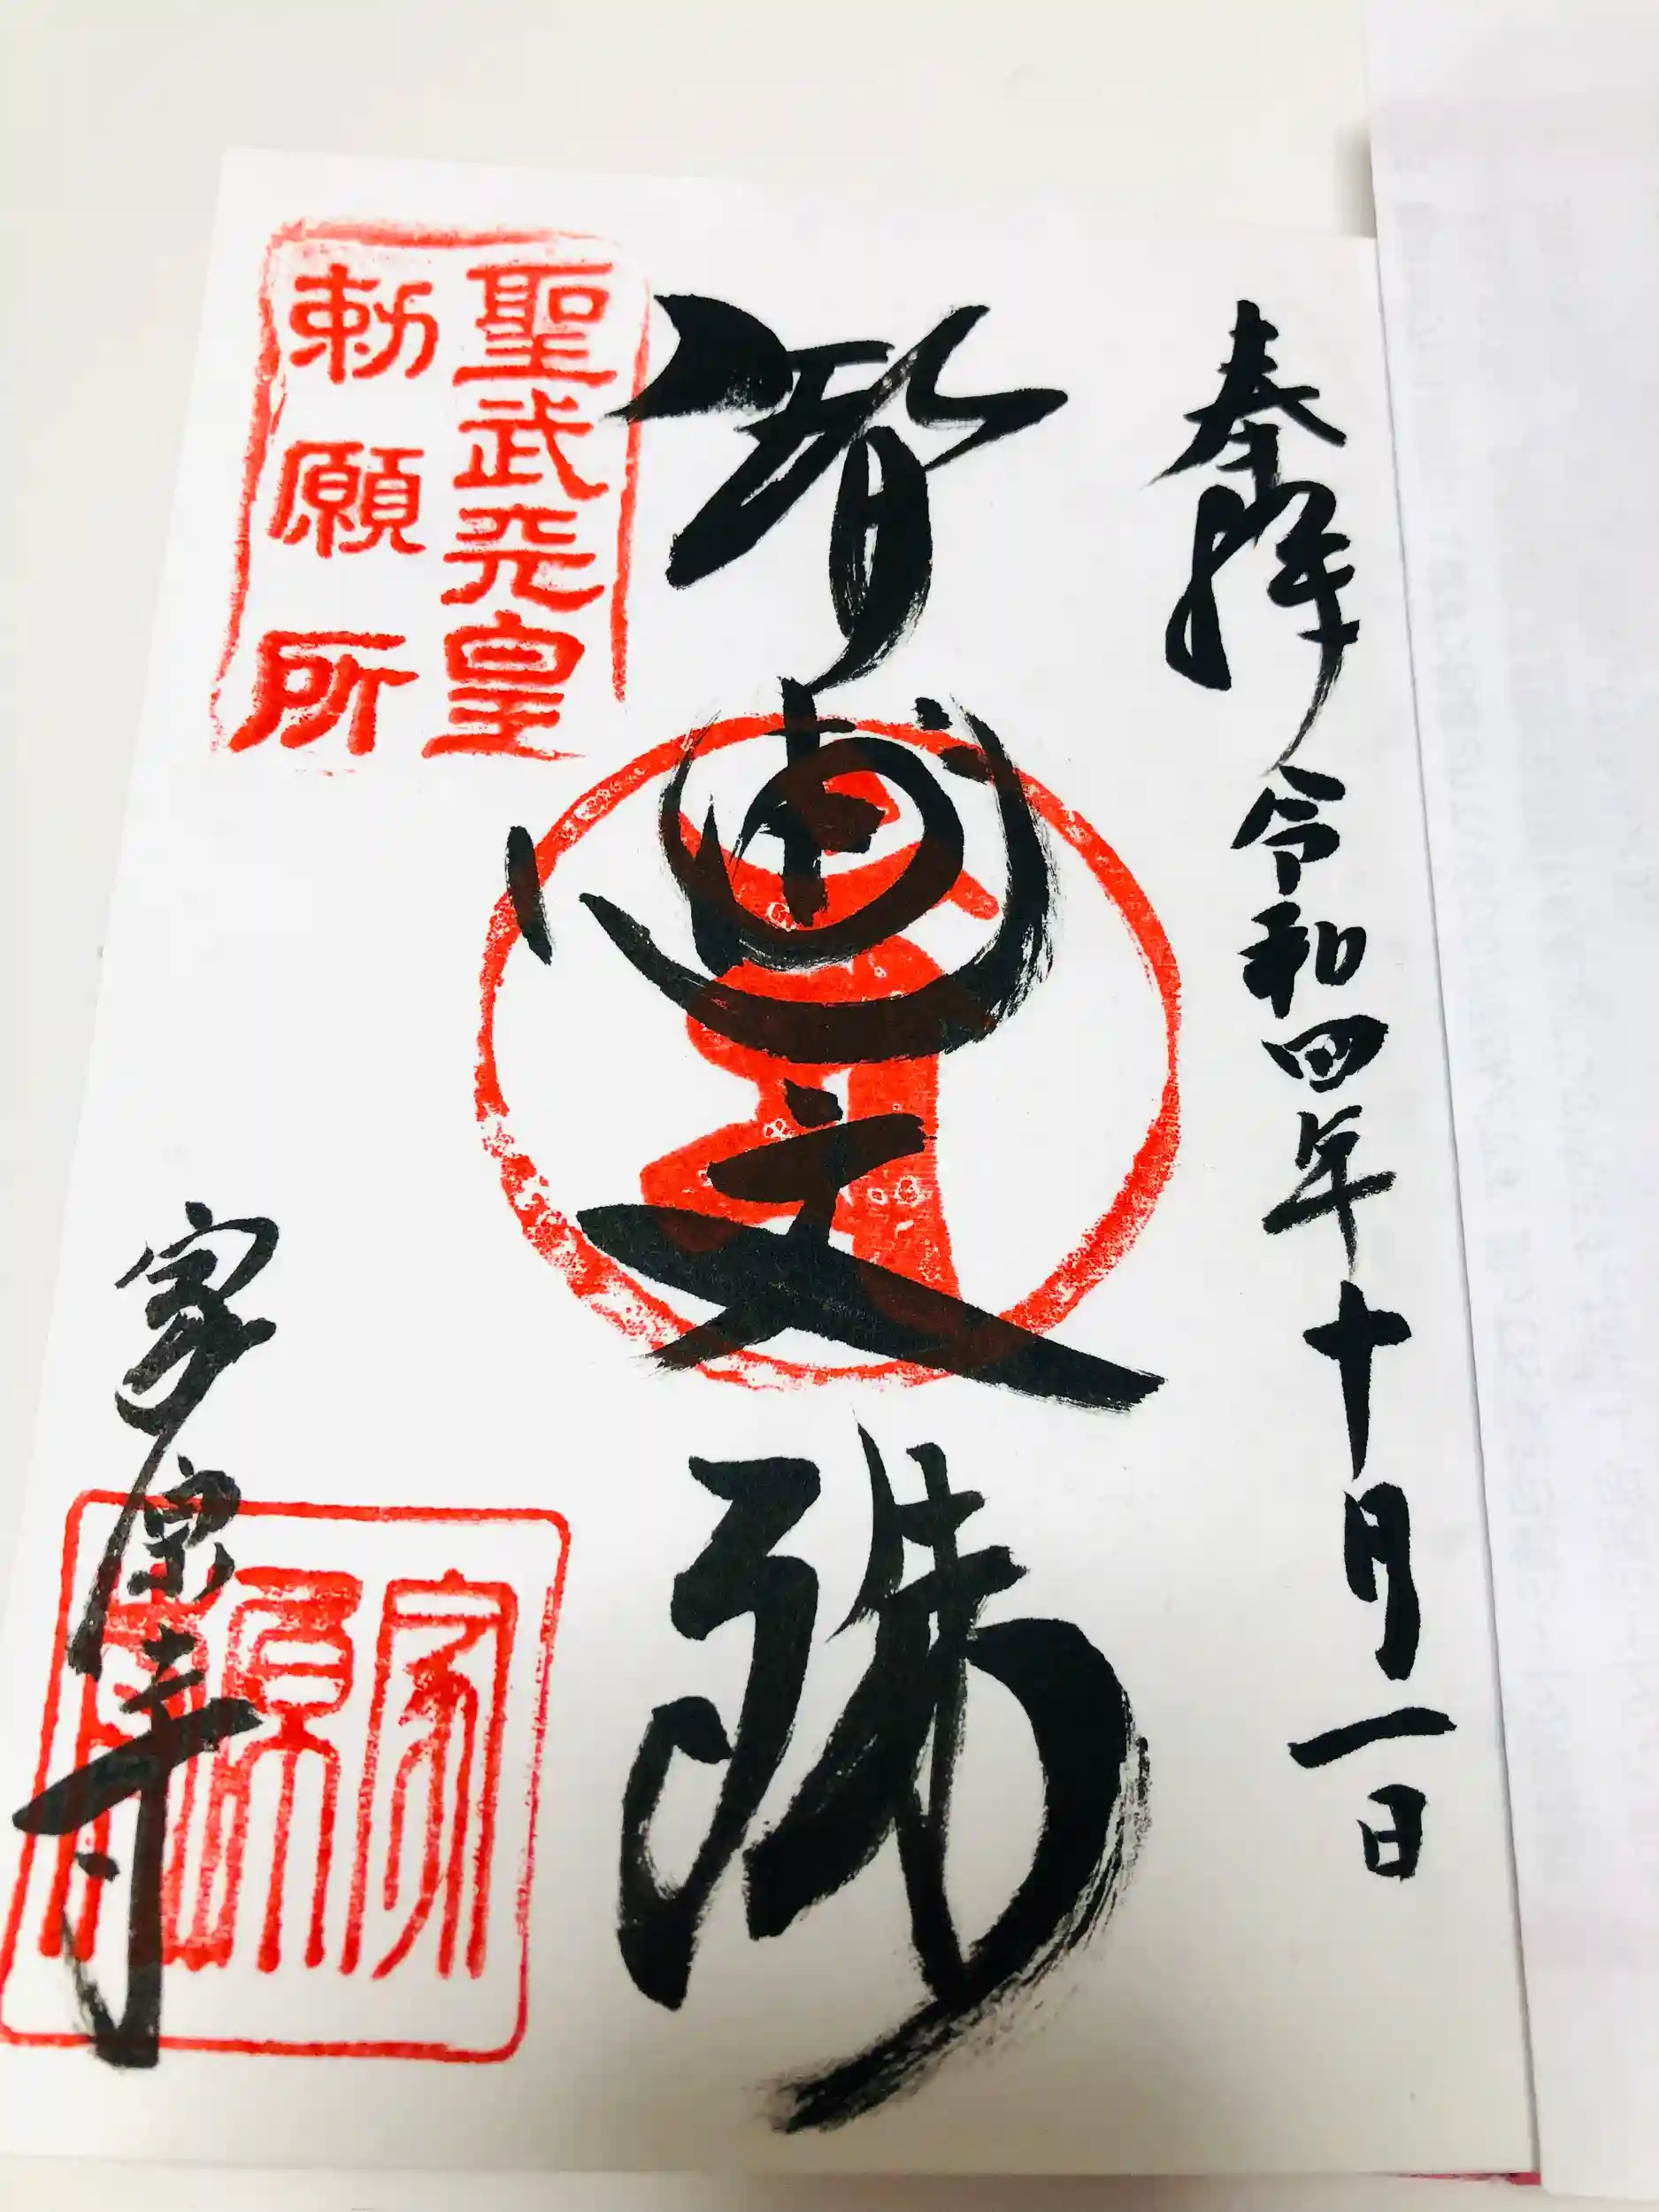 奉拝 令和四年十月一日
智恵文殊
聖武天皇
勅願所
家原寺
家原